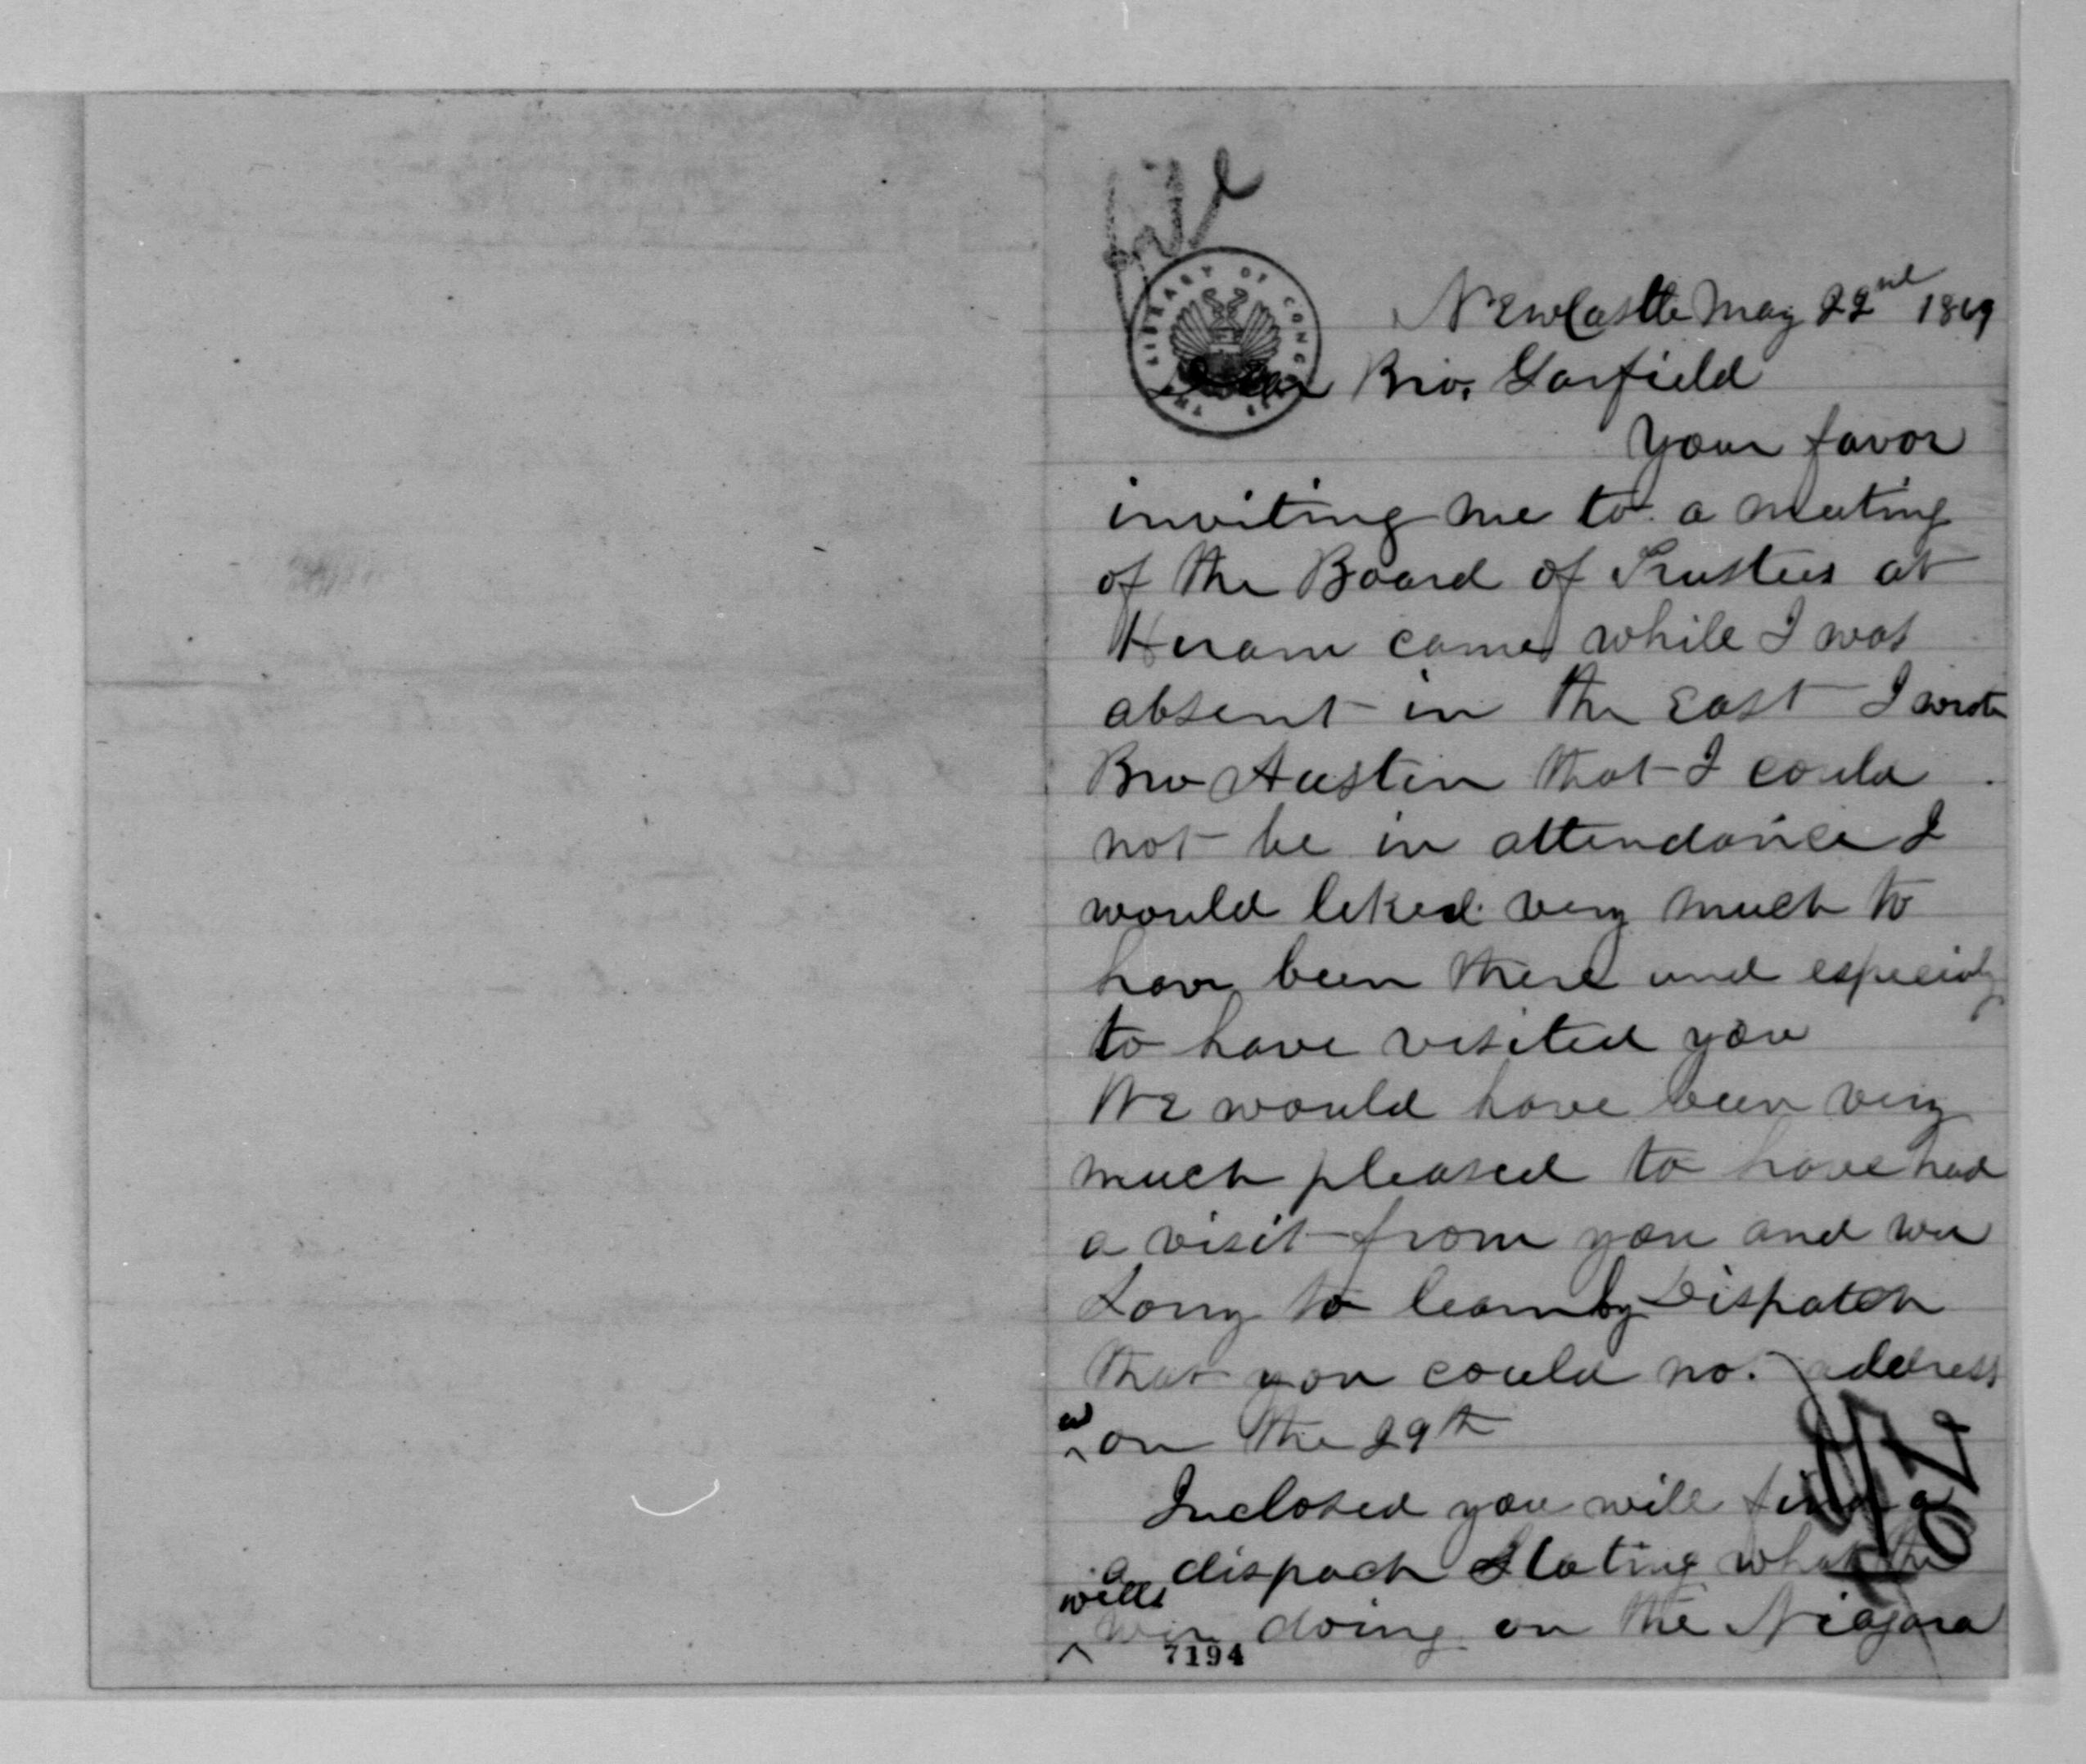 file
THE LIBRARY OF CONGRESS
NEwCastle May 22nd 1869
Dear Bro. Garfield
Your favor
inviting me to a meeting
of the Board of Trustees at
Hiram came while I was
absent in the East I wrote
Bro Austin that I could
not be in attendance I
would liked very much to
have been there and especialy
to have visited you
WE would have been very
much pleased to have had
a visit from you and was
Sorry to learn by Dispatch
that you could not address
us
^ on the 29th
Inclosed you will find a
a dispach Stating what the
wells
^ were doing on the Niagara
7194